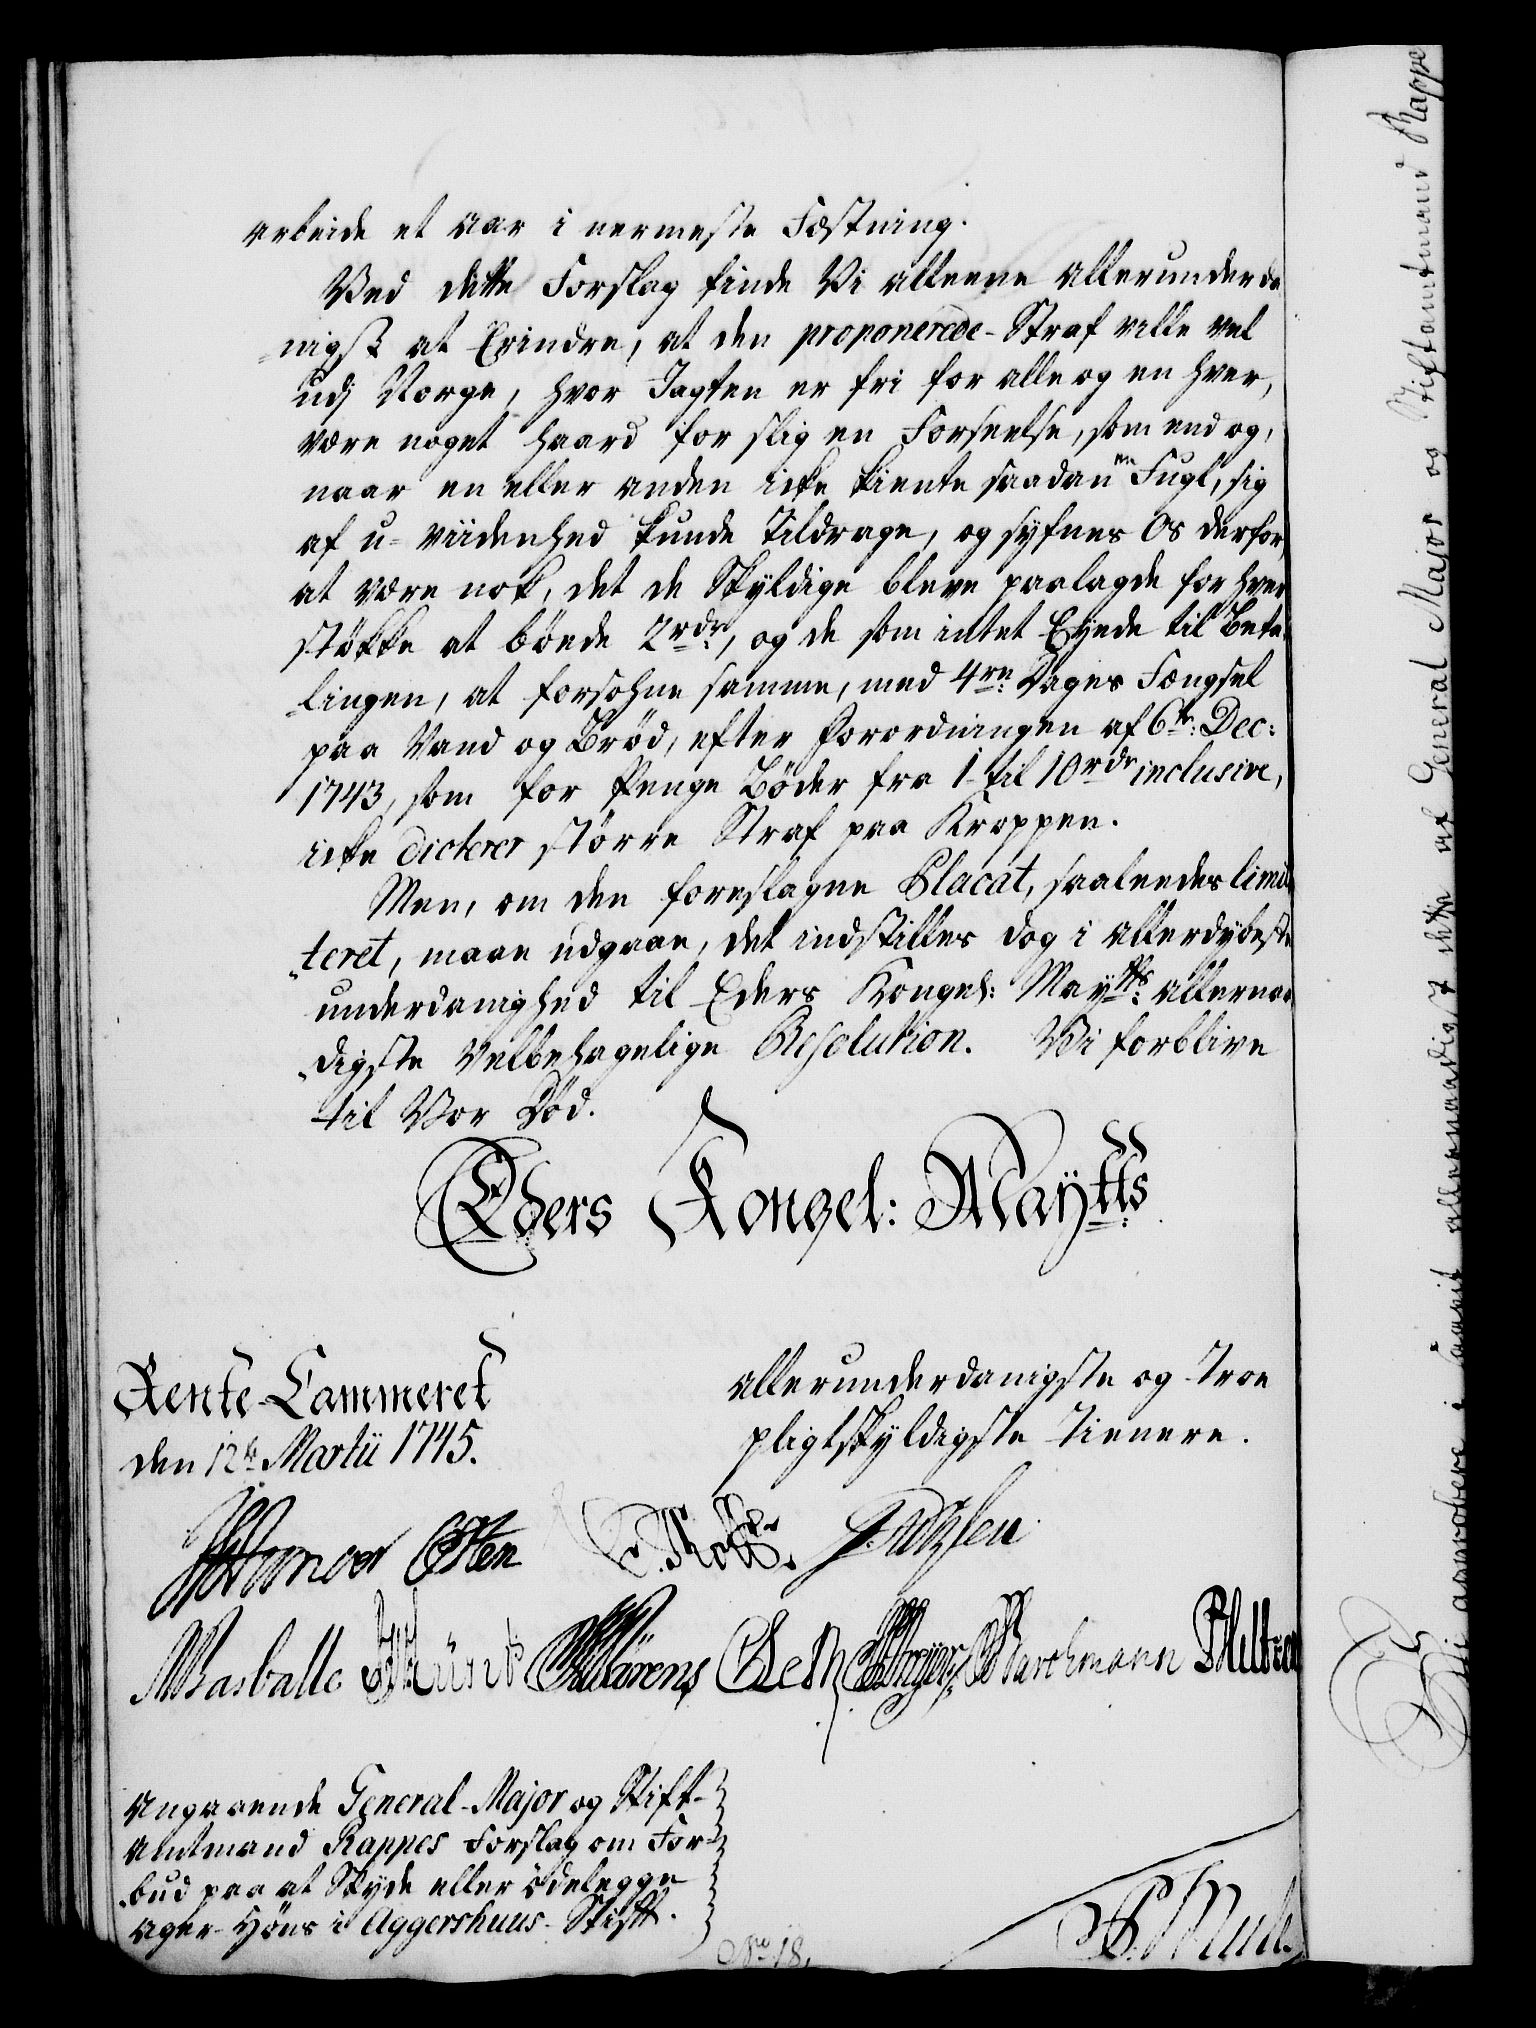 arbeide et Aar i nermeste Fæstning.
Ved dette Forslag finde Vi alleene allerunderda
nigst at Erindre, at den proponerede Straf ville vel
udj Norge, hvor Jagten er fri for alle og en hver,
være noget haard for slig en Forseelse, som end og,
naar en eller anden icke kiente saadan Fugl, sig
af u-viidenhed kunde tildrage, og syfnes Os derfor,
at være nok, det de Skyldige bleve paalagde for hver
støkke at bøde 2 rdr:, og de som intet Eyede til Beta
lingen, at forsohne samme, med 4re: Dages Fængsel
paa Vand og Brød, efter Forordningen af 6te: Dec:
1743, som for Penge Bøder fra 1 til 10 rdr inclusive,
icke dicterer større Straf paa Kroppen.
Men, om den foreslagne Placat, saaleedes limi
teret, maae udgaae, det indstilles dog i allerdybeste
underdanighed til Eders Kongel: Maytts: allernaa
digste Velbehagelige Resolution. Vi forblive
til Vor Død.
Eders Kongel: Maytts:
Rente-Cammeret
den 12te Martii 1745.
allerunderdanigste og troe
pligtskyldigste tienere.
Osten
Angaaende General-Major og Stift-
Amtmand Rappes Forslag om For-
bud paa at Skyde eller ødelegge
Ager-Høns i Aggershuus-Stift.
No 18.
Vi approbere i saavit allernaadigst dette af General Major og Stiftamtmand Rappe